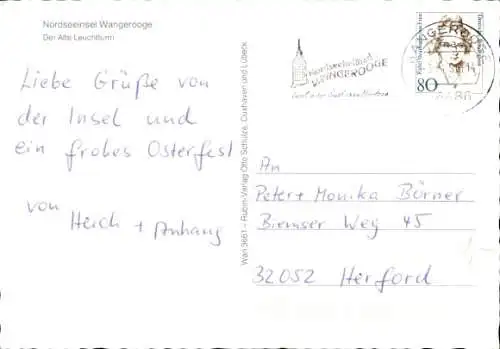 Nordseeinsel Wangerooge
Der Alte Leuchtturm
Liebe Grüße von
der Insel und
ein frohes Osterfest
von
Heich + Anhang
Wan 3661 – Rubin-Verlag Otto Schulze, Cuxhaven und Lübeck
Nordseeheilbad
WANGEROOGE
80
An
Peter + Monika Börner
Biemser Weg 45
32052 Herford